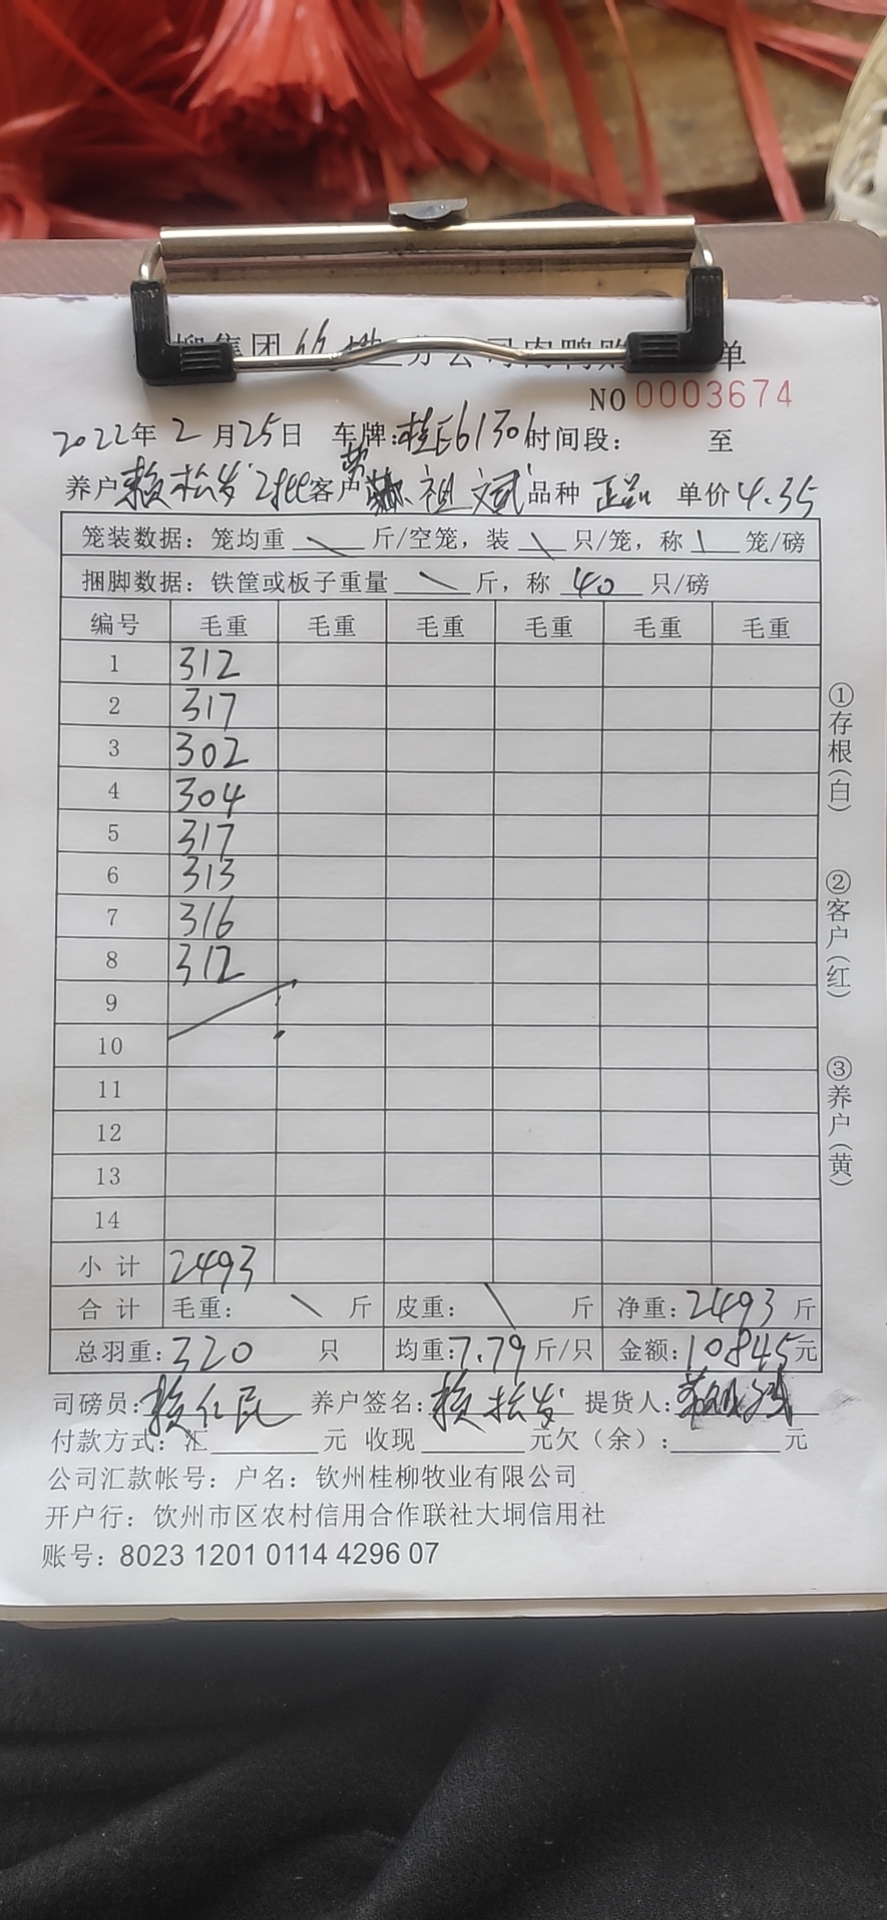 柳集团 分公司肉鸭购 单
NO 0003674
2022年 2 月25日 车牌:桂E61301 时间段: 至
养户 赖松发 客户 祖斌 品种 正品 单价 4.35
笼装数据: 笼均重 \ 斤/空笼, 装 \ 只/笼, 称 \ 笼/磅
捆脚数据: 铁筐或板子重量 \ 斤, 称 40 只/磅
编号 毛重 毛重 毛重 毛重 毛重 毛重
1 312
2 317
3 302
4 304
5 317
6 313
7 316
8 312
9
10
11
12
13
14
小计 2493
合计 毛重: \ 斤 皮重: \ 斤 净重: 2493 斤
总羽重: 320 只 均重: 7.79 斤/只 金额: 10845 元
司磅员: 赖仁民 养户签名: 赖松发 提货人:
付款方式: 汇 元 收现 元欠(余): 元
公司汇款帐号: 户名: 钦州桂柳牧业有限公司
开户行: 饮州市区农村信用合作联社大垌信用社
账号: 8023 1201 0114 4296 07
①存根(白)
②客户(红)
③养户(黄)